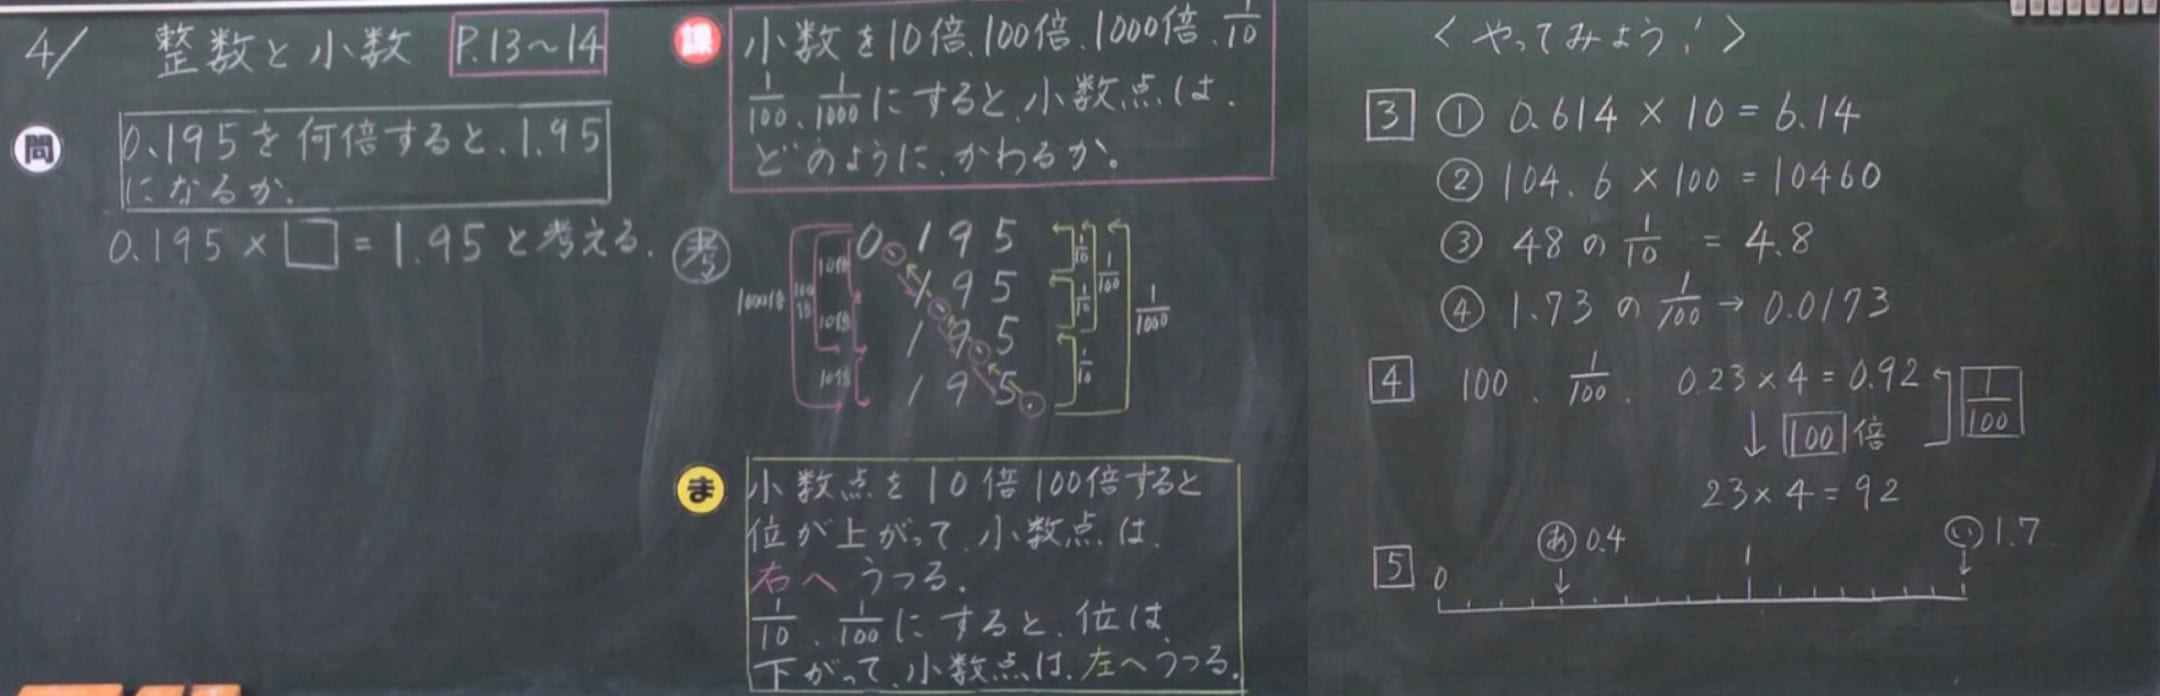 4/ 整数と小数 P.13〜14
問 0.195を何倍すると、1.95
になるか。
0.195 × □ = 1.95 と考える.
課 小数を10倍、100倍、1000倍、1/10
1/100、1/1000にすると、小数点は、
どのように、かわるか。
考 0.195
1.95
19.5
195.
10倍
10倍
10倍
100倍
1000倍
1/10
1/10
1/10
1/100
1/1000
ま 小数点を10倍100倍すると
位が上がって、小数点は、
右へうつる.
1/10、1/100にすると、位は、
下がって、小数点は、左へうつる.
<やってみよう!>
3 ① 0.614 × 10 = 6.14
② 104.6 × 100 = 10460
③ 48の 1/10 = 4.8
④ 1.73の 1/100 → 0.0173
4 100、1/100、 0.23 × 4 = 0.92
↓ 100倍 1/100
23 × 4 = 92
5 0 あ 0.4 1 い 1.7